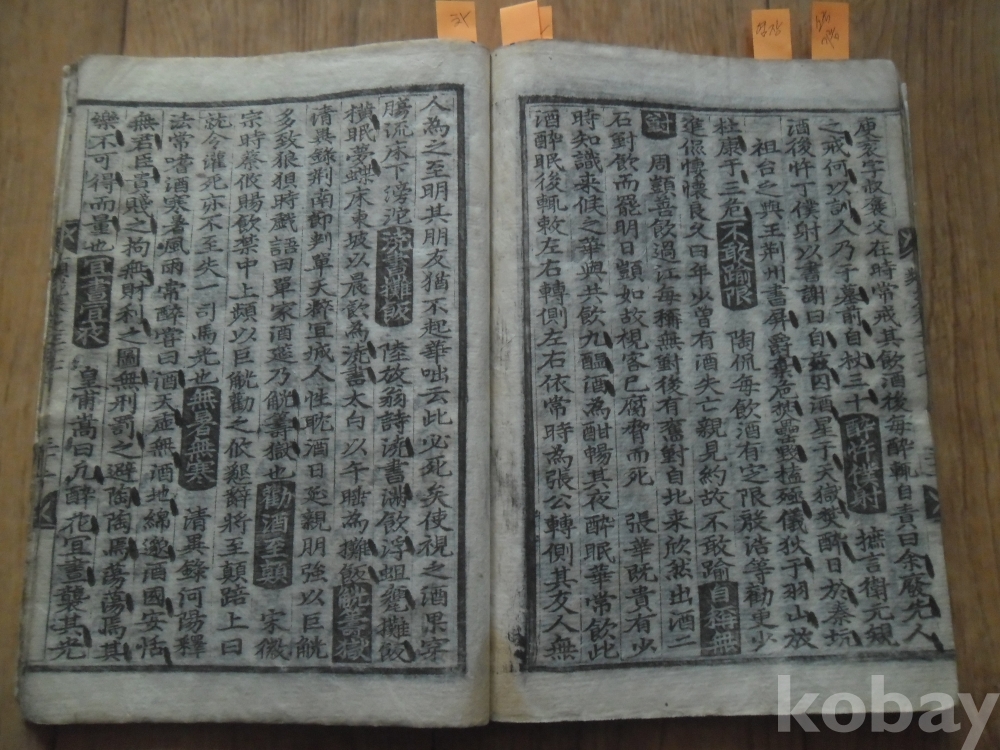 庾袞字叔褒父在時常戒其飲酒後每醉輒自責曰余廢先人
之戒何以訓人乃于墓前自杖三十 醉忤僕射 摭言衛元規
酒後忤丁僕射以書謝曰自茲囚酒星于天獄焚醉日於秦坑
祖台之與王荊州書屏爵棄卮焚罍毀榼殛儀狄于羽山放
杜康于三危 不敢踰限 陶侃每飲酒有定限殷浩等勸更少
進侃悽懷良久曰年少曾有酒失亡親見約故不敢踰 自稱無
對 周顗善飲過江每稱無對後有舊對自北来欣然出酒二
石對飲而罷明日顗如故視客已腐脅而死 張華既貴有少
時知識来候之華與共飲九醞酒為酣暢其夜醉眠華常飲此
酒醉眠後輒敕左右轉側左右依常時為張公轉側其友人無
人為之至明其朋友猶不起華咄云此必死矣使視之酒果穿
膓流床下滂沱 澆書攤飯 陸放翁詩澆書滿飲浮蛆甕攤飯
橫眠夢蝶床東坡以晨飲為澆書太白以午睡為攤飯 觥籌獄
清異錄荊南節判單天粹宜城人性耽酒日延親朋強以巨觥
多致狼狽時戲語曰單家酒筵乃觥籌獄也 勸酒至頭 宋徽
宗時蔡攸賜飲禁中上頻以巨觥勸之攸懇辭將至顛踣上曰
就令灌死亦不至失一司馬光也 無暑無寒 清異錄河陽釋
法常嗜酒寒暑風雨常醉嘗曰酒天虛無酒地綿邈酒國安恬
無君臣貴賤之拘無財利之圖無刑罰之避陶陶焉蕩蕩焉其
樂不可得而量也 宜晝宜夜 皇甫嵩曰凡醉花宜晝襲其光
kobay